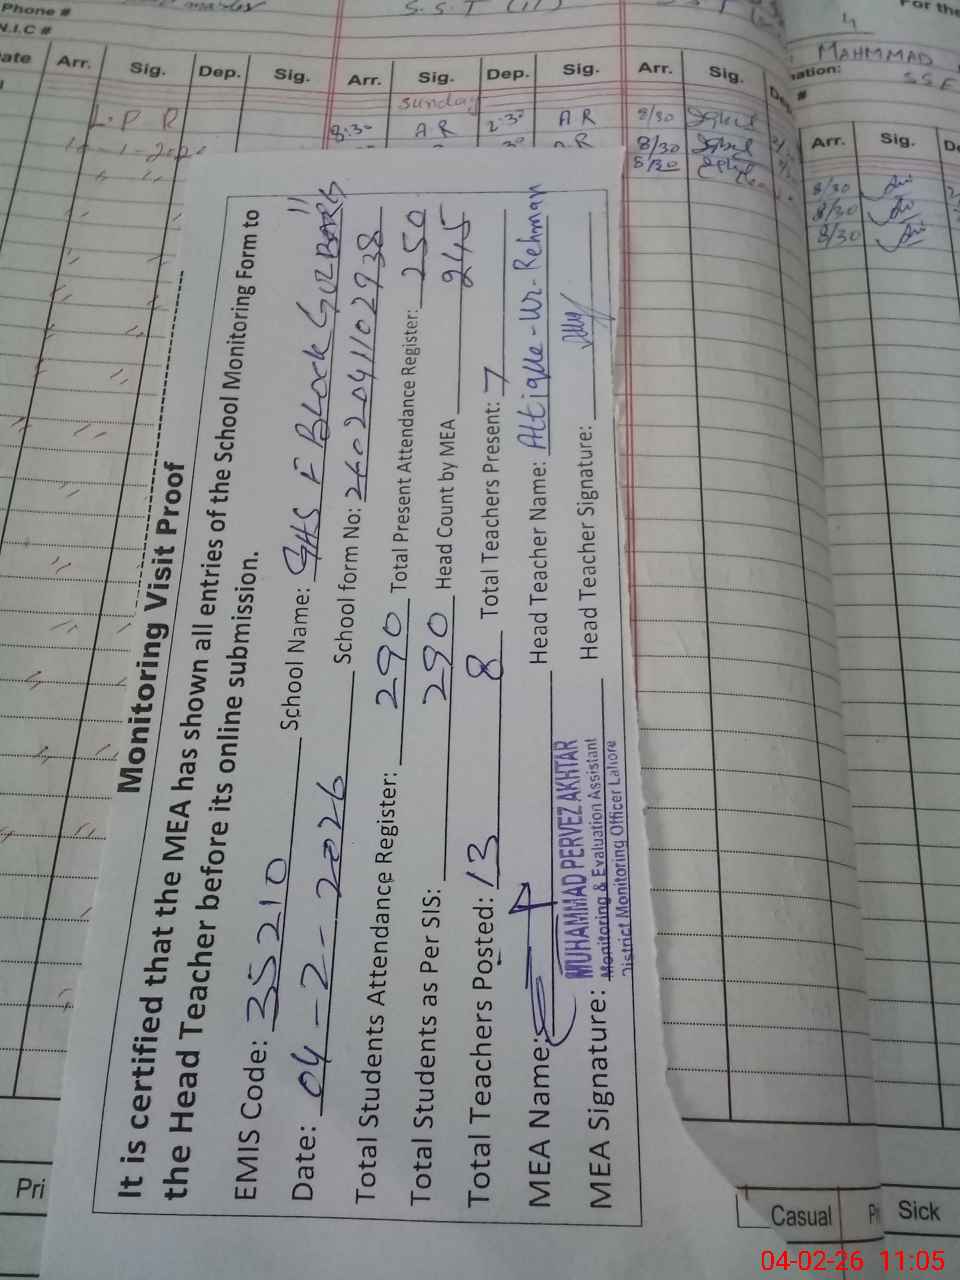 Monitoring Visit Proof
It is certified that the MEA has shown all entries of the School Monitoring Form to
the Head Teacher before its online submission.
EMIS Code: 35210 School Name: GHS F Block
Date: 04-2-2026 School form No:
Total Students Attendance Register: 290 Total Present Attendance Register: 250
Total Students as Per SIS: 290 Head Count by MEA 245
Total Teachers Posted: 13 8 Total Teachers Present: 7
MEA Name: Head Teacher Name: Attique-Ur-Rehman
MEA Signature: Head Teacher Signature:
MUHAMMAD PERVEZ AKHTAR
Monitoring & Evaluation Assistant
District Monitoring Officer Lahore
Phone #
N.I.C #
Arr. Sig. Dep. Sig. Arr. Sig. Dep. Sig. Arr. Sig.
Sunday
L.P R
8:30 A R 2:30 A R 8/30
8/30
8/30
For the
MAHMMAD
Arr. Sig.
8/30
8/30
8/30
Casual
Sick
04-02-26 11:05